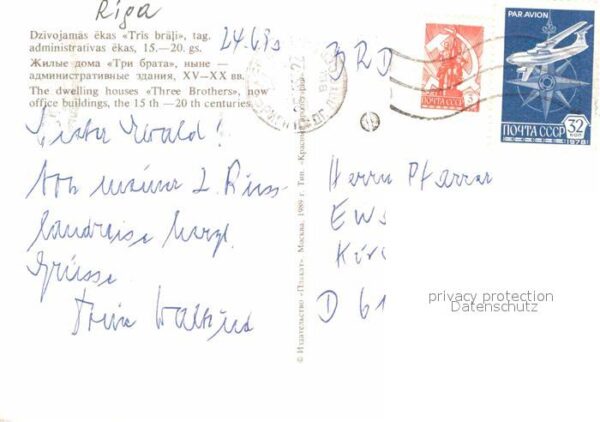 Riga
Dzīvojamās ēkas «Trīs brāļi», tag.
administratīvas ēkas, 15.—20. gs.
Жилые дома «Три брата», ныне —
административные здания, XV—XX вв.
The dwelling houses «Three Brothers», now
office buildings, the 15 th —20 th centuries.
24.6.90
BRD
PAR AVION
ПОЧТА СССР
ПОЧТА СССР 32 коп
1978
Lieber Ewald!
Von meiner 2. Russ-
landreise herzl.
Grüsse
© Издательство «Плакат». Москва. 1989 г. Тип.
Herrn Pfarrer
D 61
privacy protection
Datenschutz